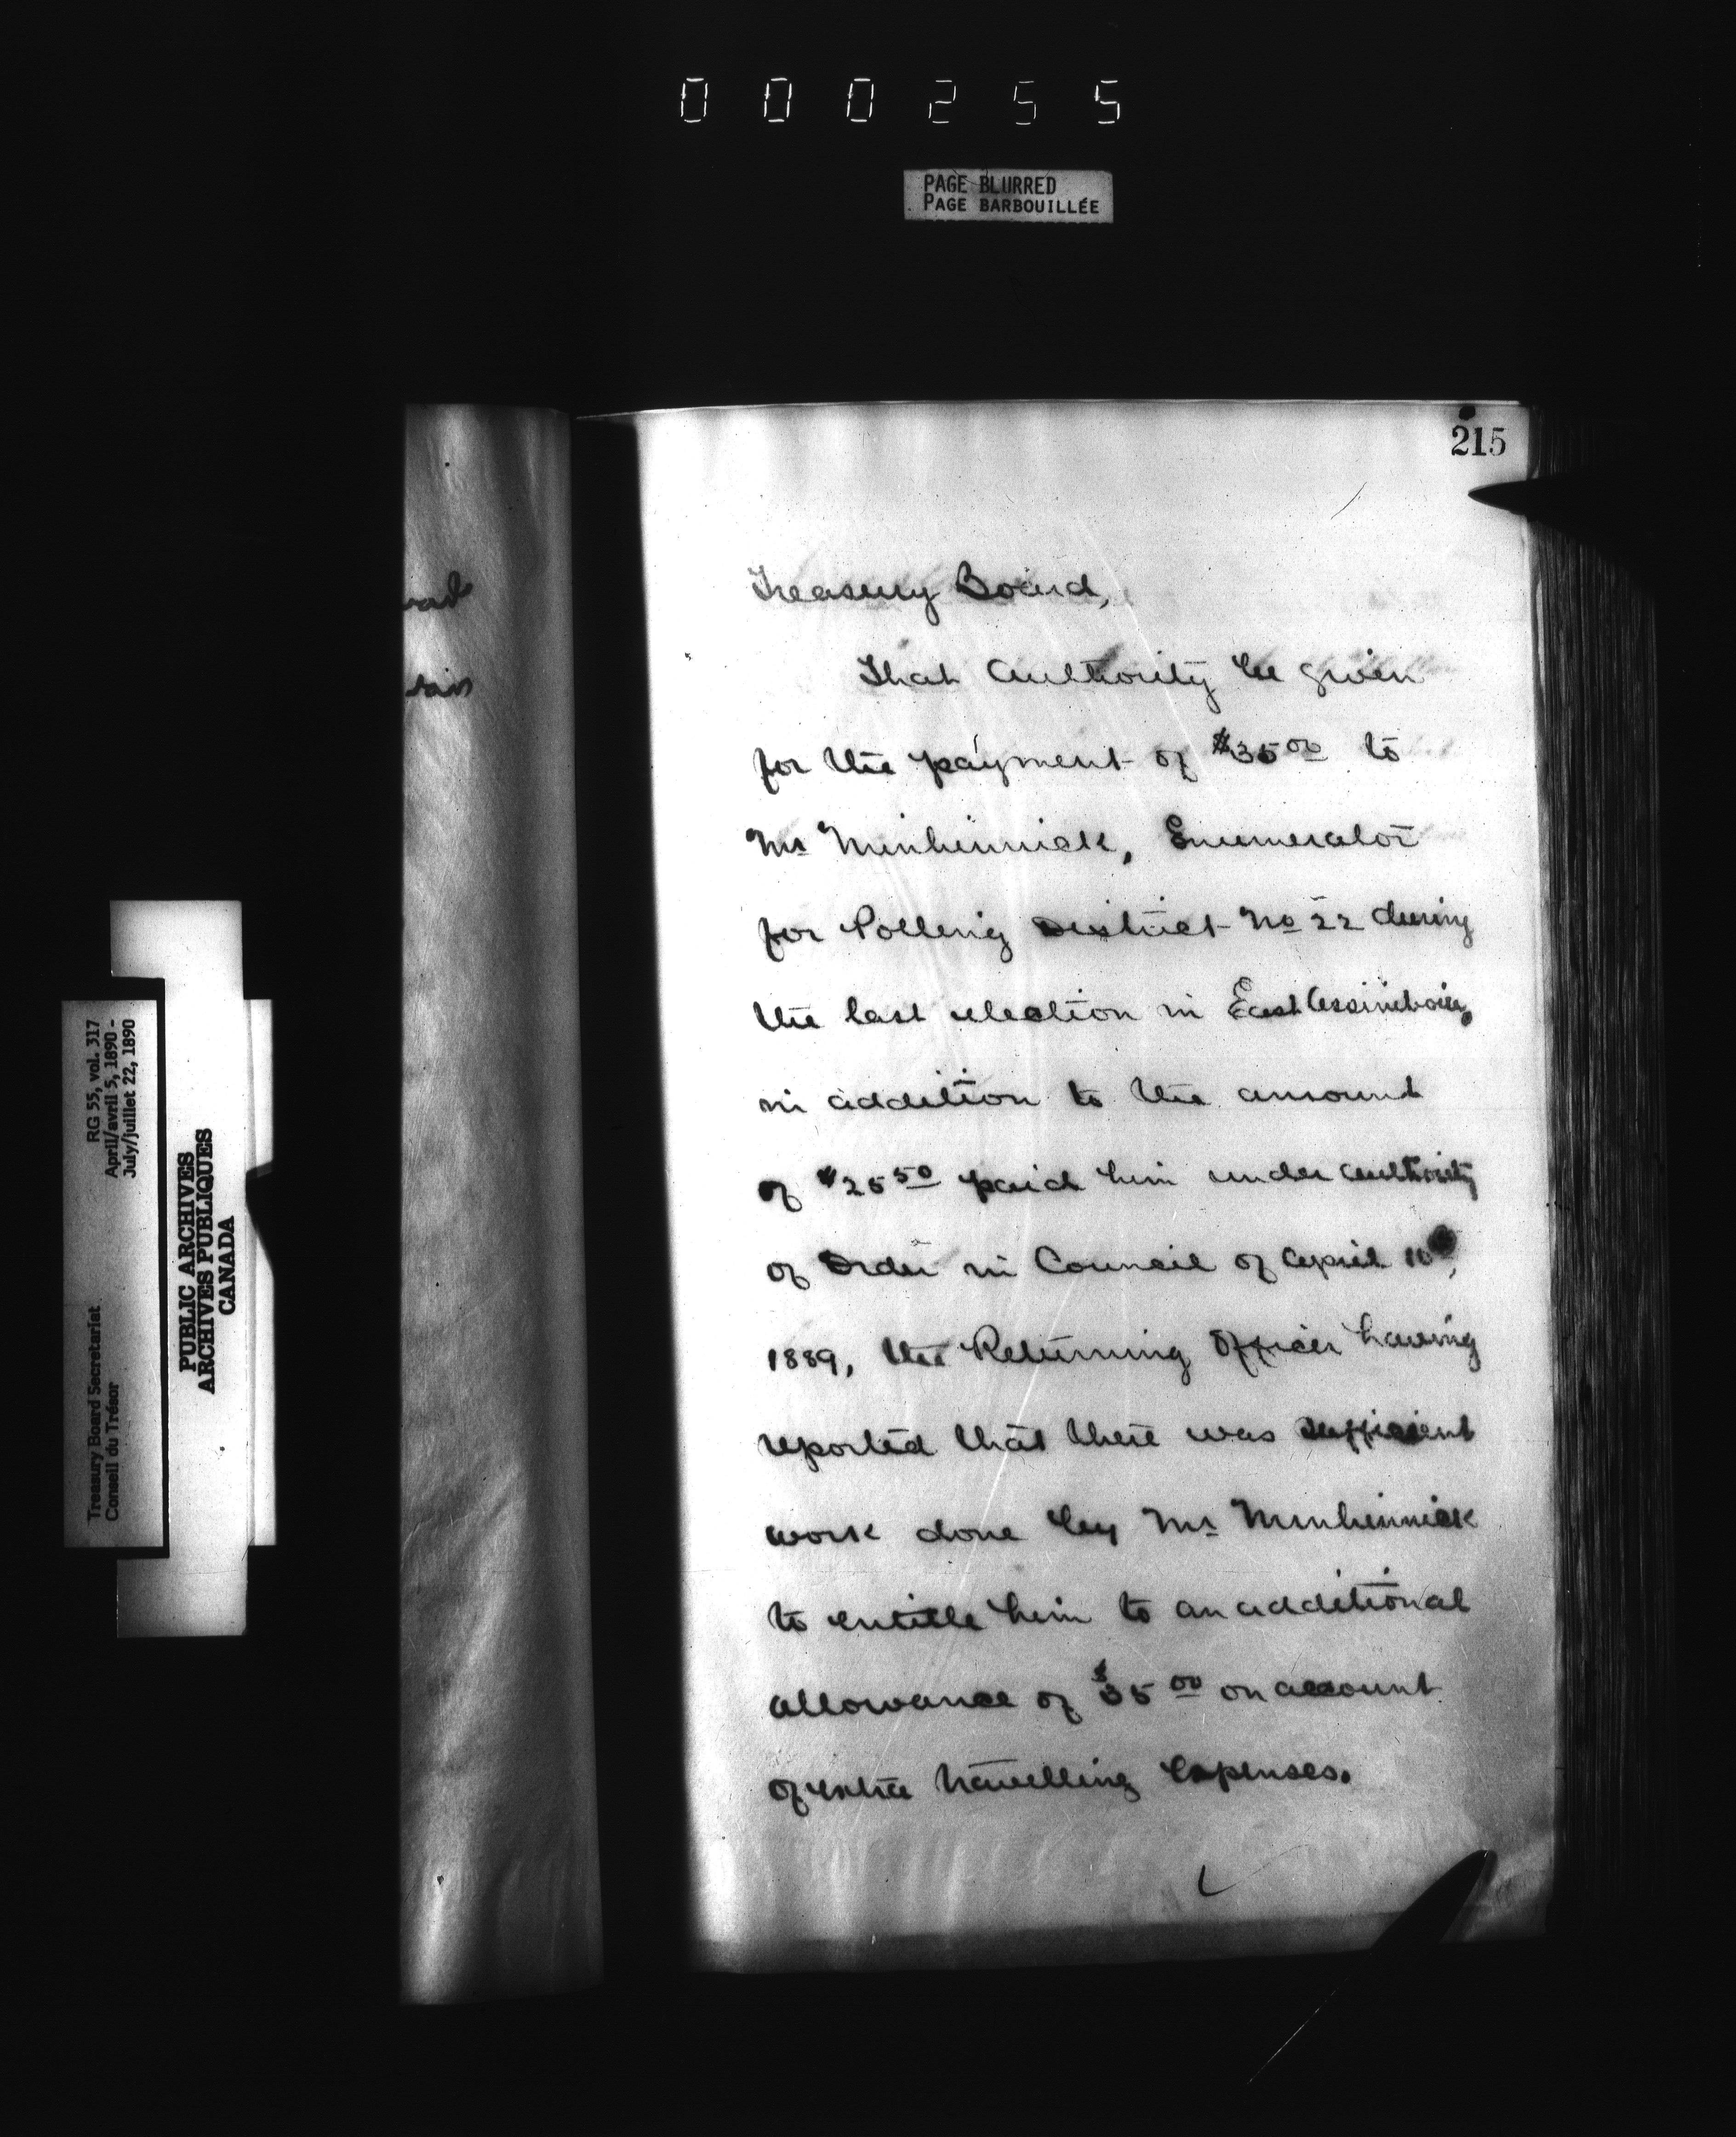 000255
PAGE BLURRED
PAGE BARBOUILLÉE
215
Treasury Board,
That authority be given
for the payment of $35 00 to
Mr Minhinnick, Enumerator
for Polling District No 22 during
the last election in East Assiniboia,
in addition to the amount
of $25 50 paid him under authority
of Order in Council of April
1889, the Returning Officer having
reported that there was sufficient
work done by Mr Minhinnick
to entitle him to an additional
allowance of $35 00 on account
of extra travelling expenses.
RG 55, vol. 317
April/avril 5, 1890 -
July/juillet 22, 1890
Treasury Board Secretariat
Conseil du Trésor
PUBLIC ARCHIVES
ARCHIVES PUBLIQUES
CANADA